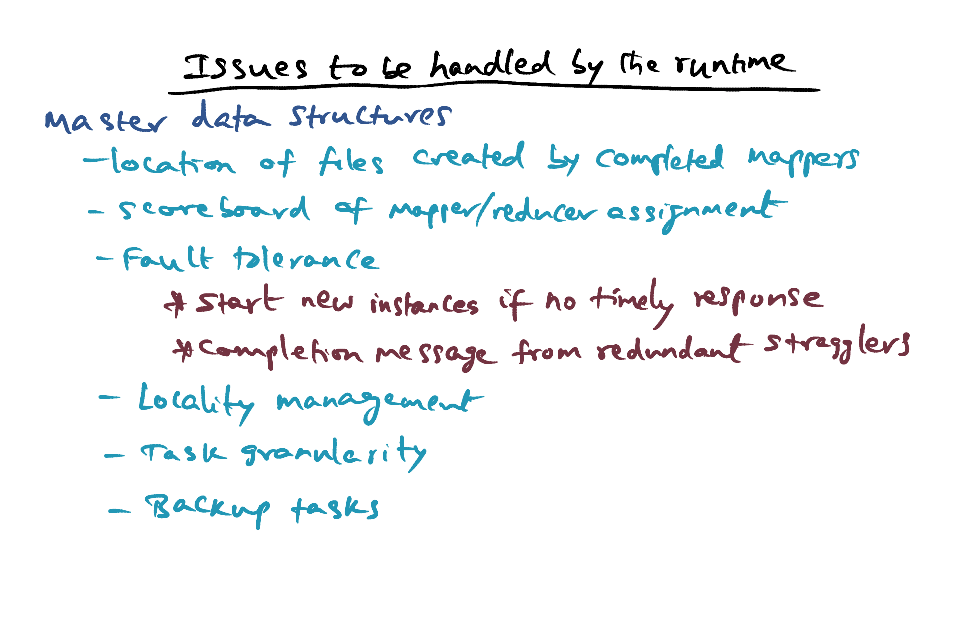 Issues to be handled by the runtime
Master data structures
- location of files created by completed mappers
- scoreboard of mapper/reducer assignment
- Fault tolerance
* Start new instances if no timely response
* Completion message from redundant stragglers
- Locality management
- Task granularity
- Backup tasks